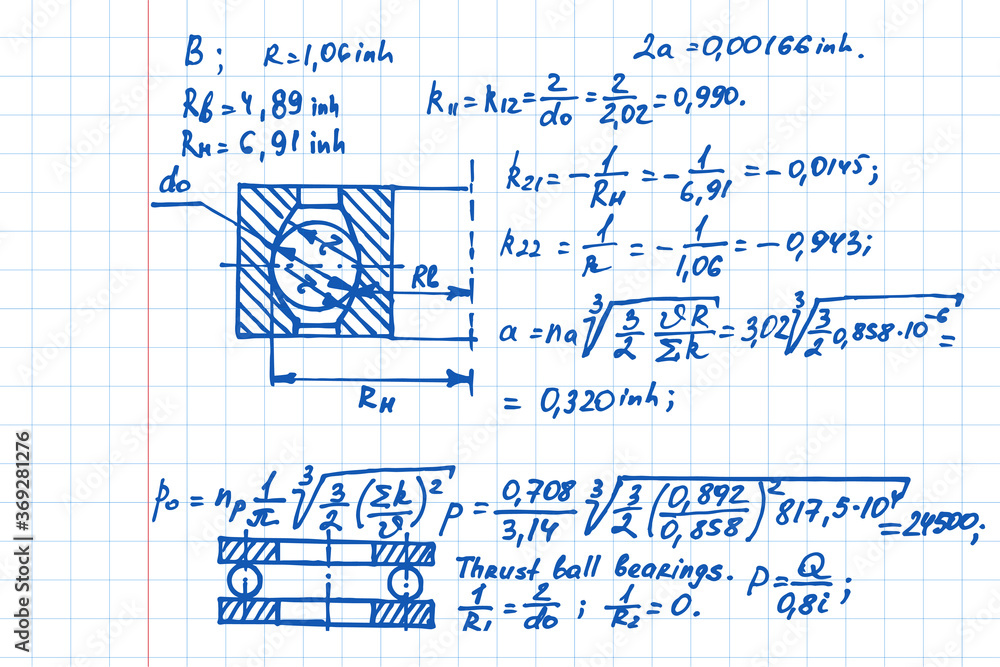 B; R=1,06 inh
2a=0,00166 inh.
Rв=4,89 inh
k11=k12=2/do=2/2,02=0,990.
Rн=6,91 inh
k21=-1/Rн=-1/6,91=-0,0145;
do
k22=1/R=-1/1,06=-0,943;
r
r
Rв
a=na∛(3/2 ϑR/Σk)=3,02∛(3/2 0,858·10⁻⁶)=
Rн
=0,320 inh;
po=np 1/π ∛(3/2 (Σk/ϑ)² p=0,708/3,14 ∛(3/2 (0,892/0,858)² 817,5·10⁴)=24500;
Thrust ball bearings. P=Q/0,8i;
1/R1=2/do; 1/R2=0.
Adobe Stock | #369281276